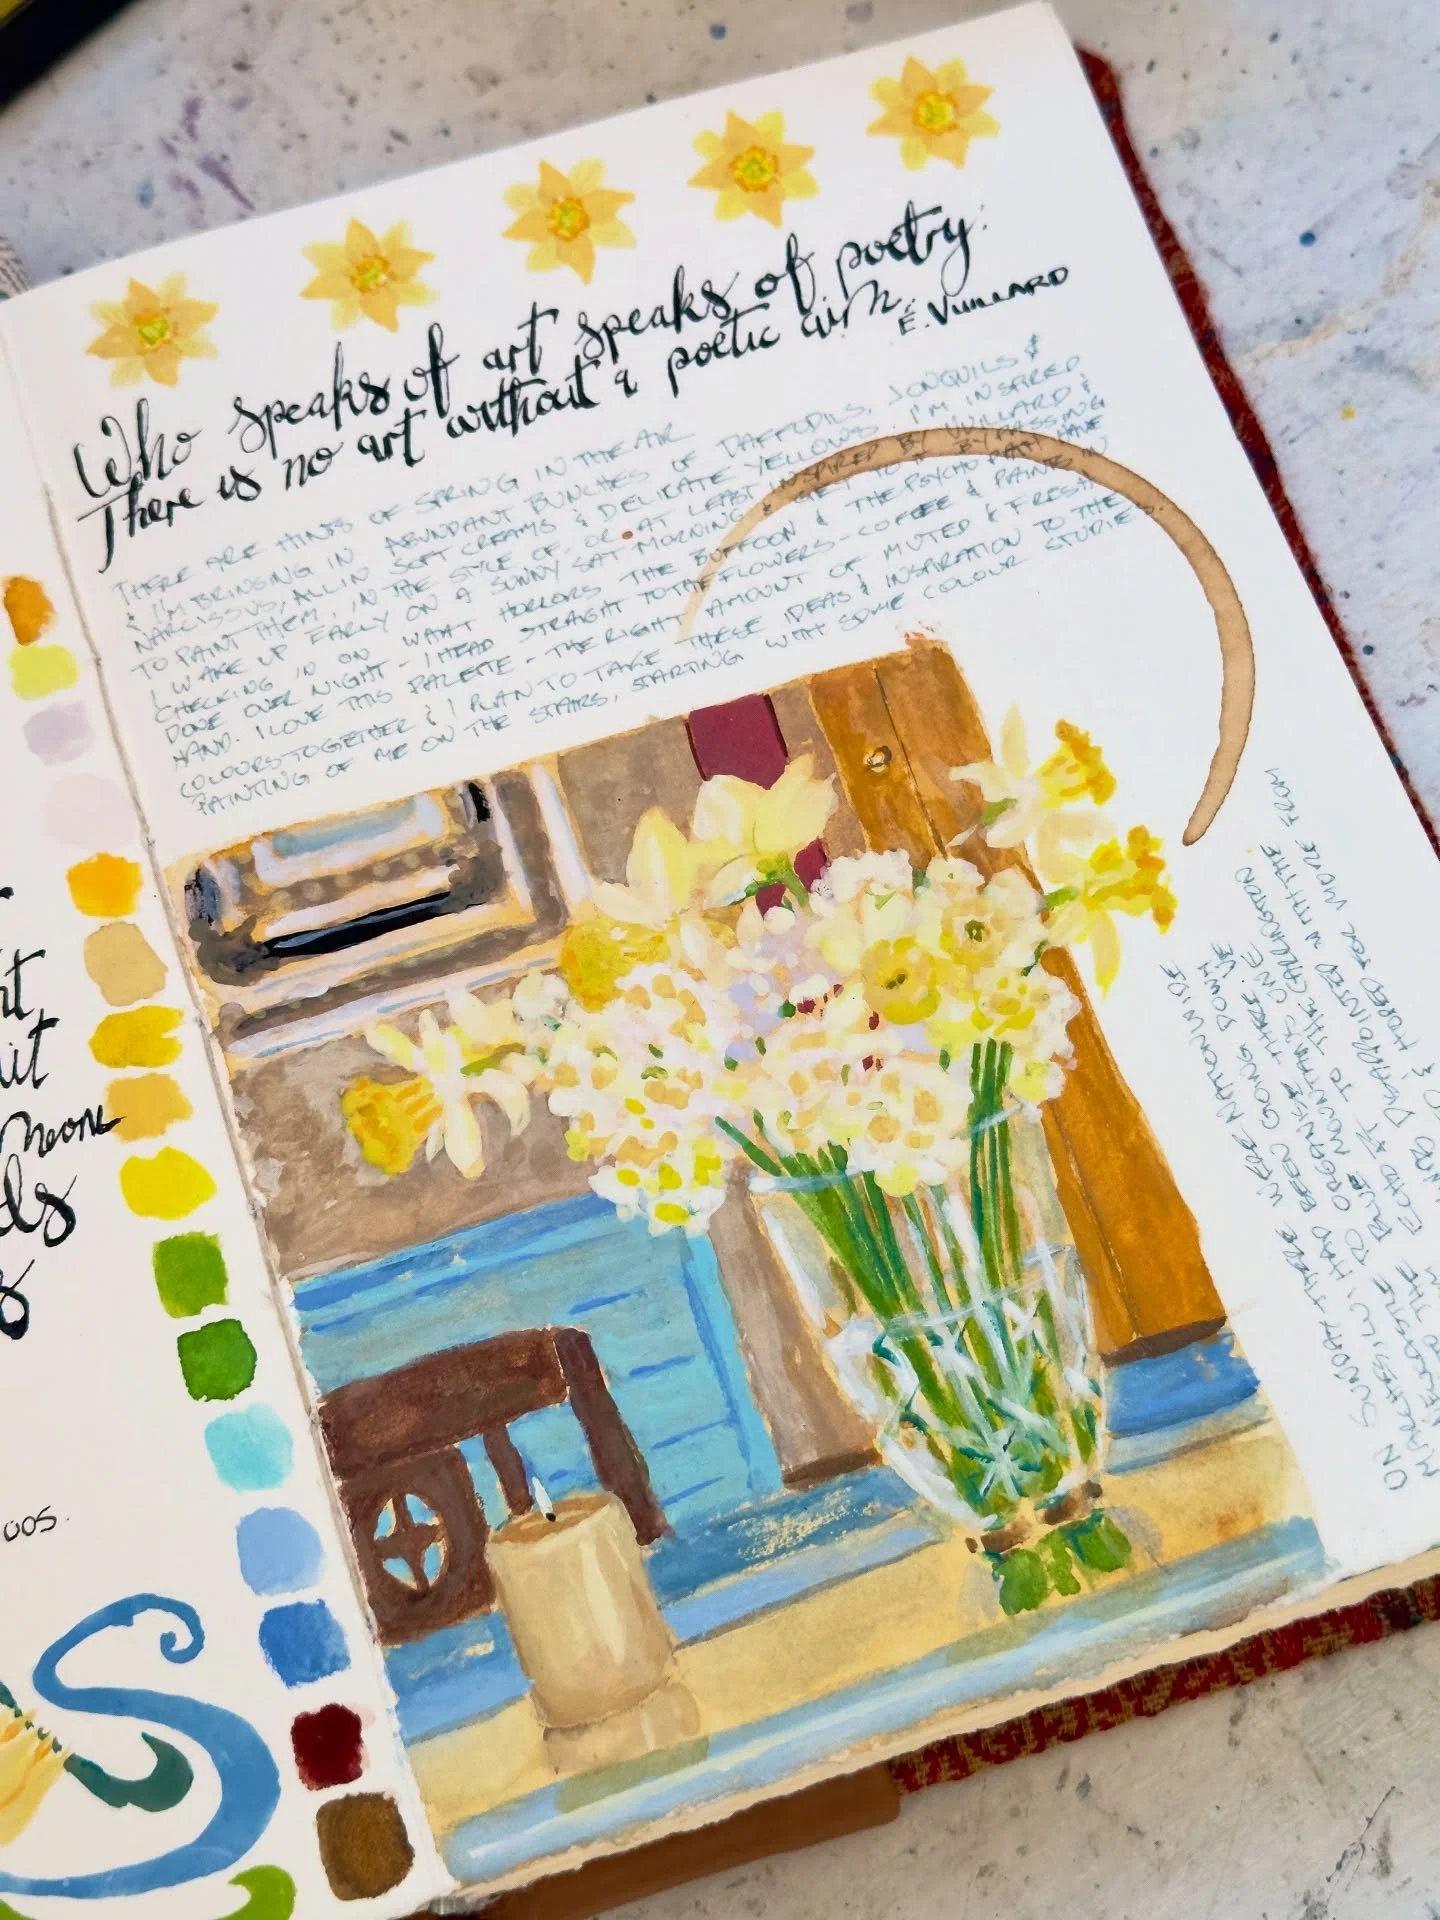 Who speaks of art speaks of poetry.
There is no art without a poetic aim.
É. VUILLARD
THERE ARE HINTS OF SPRING IN THE AIR
& I'M BRINGING IN ABUNDANT BUNCHES OF DAFFODILS, JONQUILS &
NARCISSUS, ALL IN SOFT CREAMS & DELICATE YELLOWS. I'M INSPIRED
TO PAINT THEM, IN THE STYLE OF, OR AT LEAST INSPIRED BY VUILLARD &
I WAKE UP EARLY ON A SUNNY SAT MORNING & GET TO IT BYPASSING
CHECKING IN ON WHAT HORRORS THE BUFFOON & THE PSYCHOPATH HAVE
DONE OVER NIGHT - I HEAD STRAIGHT TO THE FLOWERS - COFFEE & PAINTS IN
HAND. I LOVE THIS PALETTE - THE RIGHT AMOUNT OF MUTED & FRESH
COLOURS TOGETHER & I PLAN TO TAKE THESE IDEAS & INSPIRATION TO THE
PAINTING OF ME ON THE STAIRS, STARTING WITH SOME COLOUR STUDIES.
ON SUNDAY THERE WERE NATIONWIDE
MARCHES, HAD BEEN GOING DOWN
NEWCASTLE TO ORGANISE THERE.
THE BLUE MOUNTAINS ONE
DISAPPOINTED WITH THE
& HOPED FOR MORE FROM
ht
uit
neon
ds
s
OOS.
S